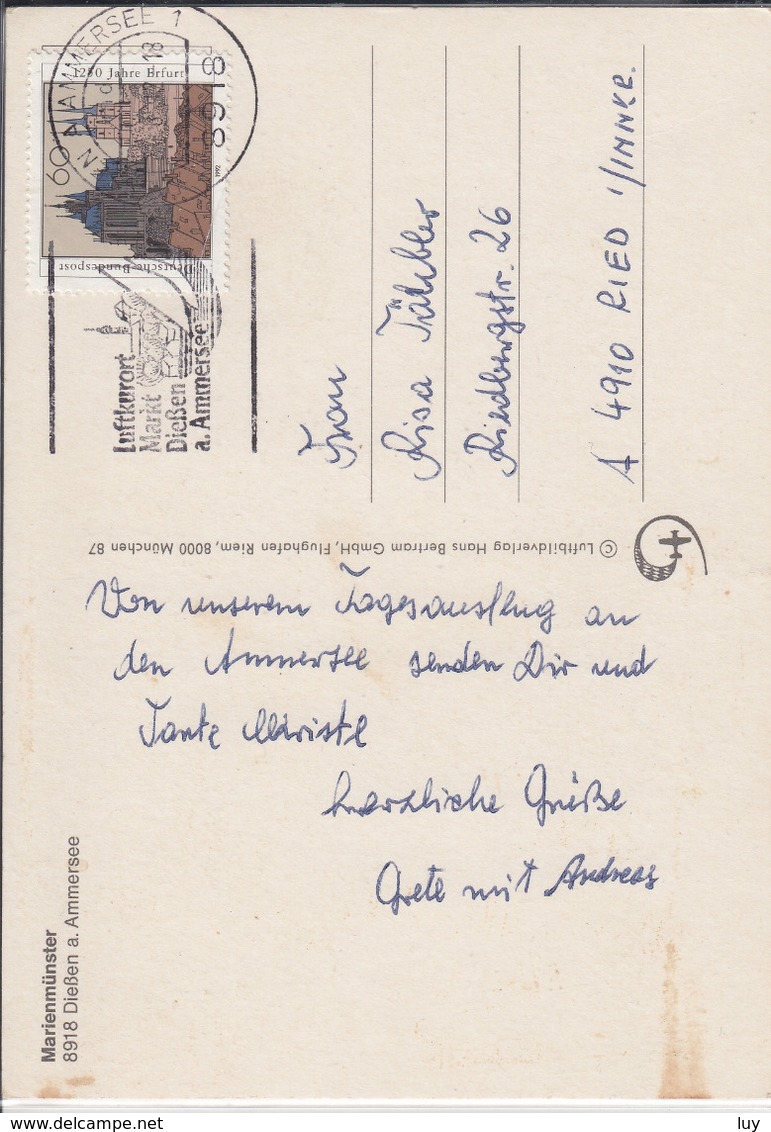 AMMERSEE 1
18
8918
1250 Jahre Erfurt
60
1992
Deutsche Bundespost
Luftkurort
Markt
Dießen
a. Ammersee
Frau
Risa
Riedbergstr. 26
A 4910 RIED I/INNKR.
© Luftbildverlag Hans Bertram GmbH, Flughafen Riem, 8000 München 87
Von unserem Tagesausflug an
den Ammersee senden Dir und
Tante
herzliche Grüße
Grete mit Andreas
Marienmünster
8918 Dießen a. Ammersee
delcampe.net
luy